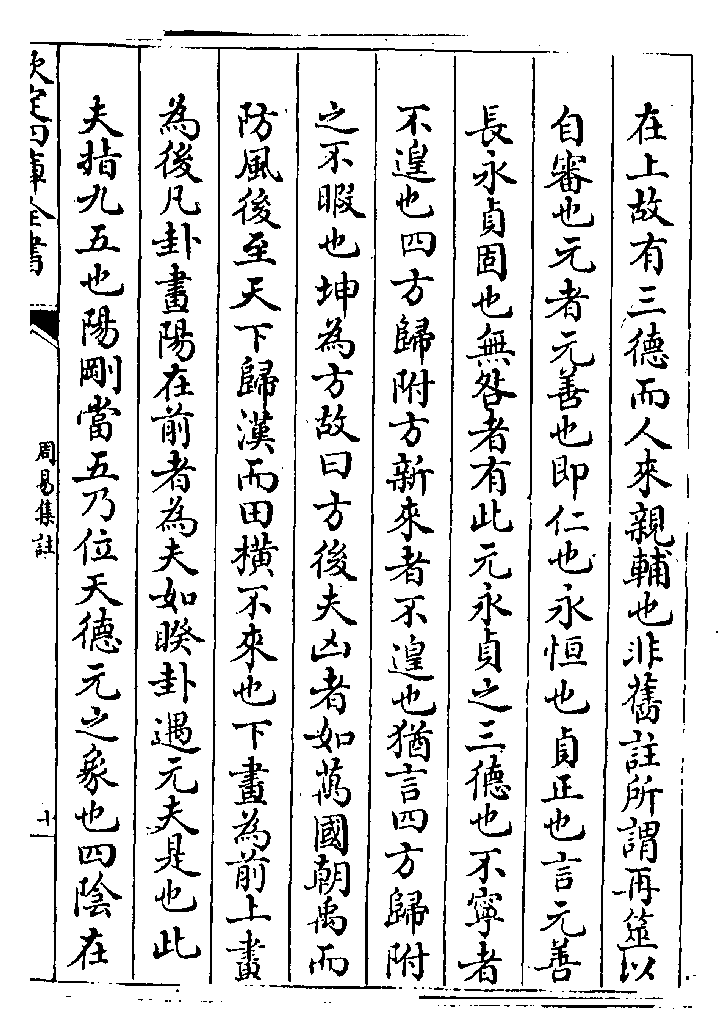 在上故有三德而人來親輔也非舊註所謂再筮以
自審也元者元善也即仁也永恒也貞正也言元善
長永貞固也無咎者有此元永貞之三德也不寧者
不遑也四方歸附方新來者不遑也猶言四方歸附
之不暇也坤為方故曰方後夫凶者如萬國朝禹而
防風後至天下歸漢而田橫不來也下畫為前上畫
為後凡卦畫陽在前者為夫如睽卦遇元夫是也此
夫指九五也陽剛當五乃位天德元之象也四陰在
欽定四庫全書
周易集註